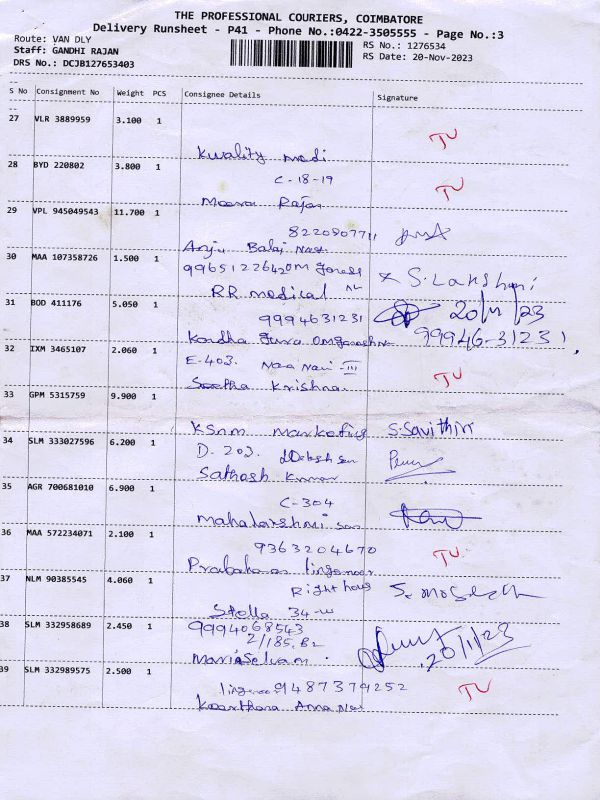 THE PROFESSIONAL COURIERS, COIMBATORE
Delivery Runsheet - P41 - Phone No.:0422-3505555 - Page No.:3
Route: VAN DLY
RS No.: 1276534
Staff: GANDHI RAJAN
RS Date: 20-Nov-2023
DRS No.: DCJB127653403
S No Consignment No Weight PCS Consignee Details Signature
27 VLR 3889959 3.100 1
TV
Kwality medi
28 BYD 220802 3.800 1 C-18-19
TV
Meera Rajan
29 VPL 945049543 11.700 1
8220907711
Anju Balaji Nagr
30 MAA 107358726 1.500 1 9965122642 OM
S. Lakshmi
RR medical
20/11/23
31 BOD 411176 5.050 1 9994631231
99946-31231
Kandha
32 IXM 3465107 2.060 1 E-403.
TV
Krishna
33 GPM 5315759 9.900 1
KSNM Marketing S. Savithiri
34 SLM 333027596 6.200 1 D. 203.
Sathosh Kumar
35 AGR 700681010 6.900 1 C-304
Mahalakshmi
36 MAA 572234071 2.100 1 9363204670
TV
Prabakaran
37 NLM 90385545 4.060 1 Right
Stella 34-
38 SLM 332958689 2.450 1 9994068543
2/185, B2
20/11/23
Mariaselvam
39 SLM 332989575 2.500 1
9487379252 TV
Anna